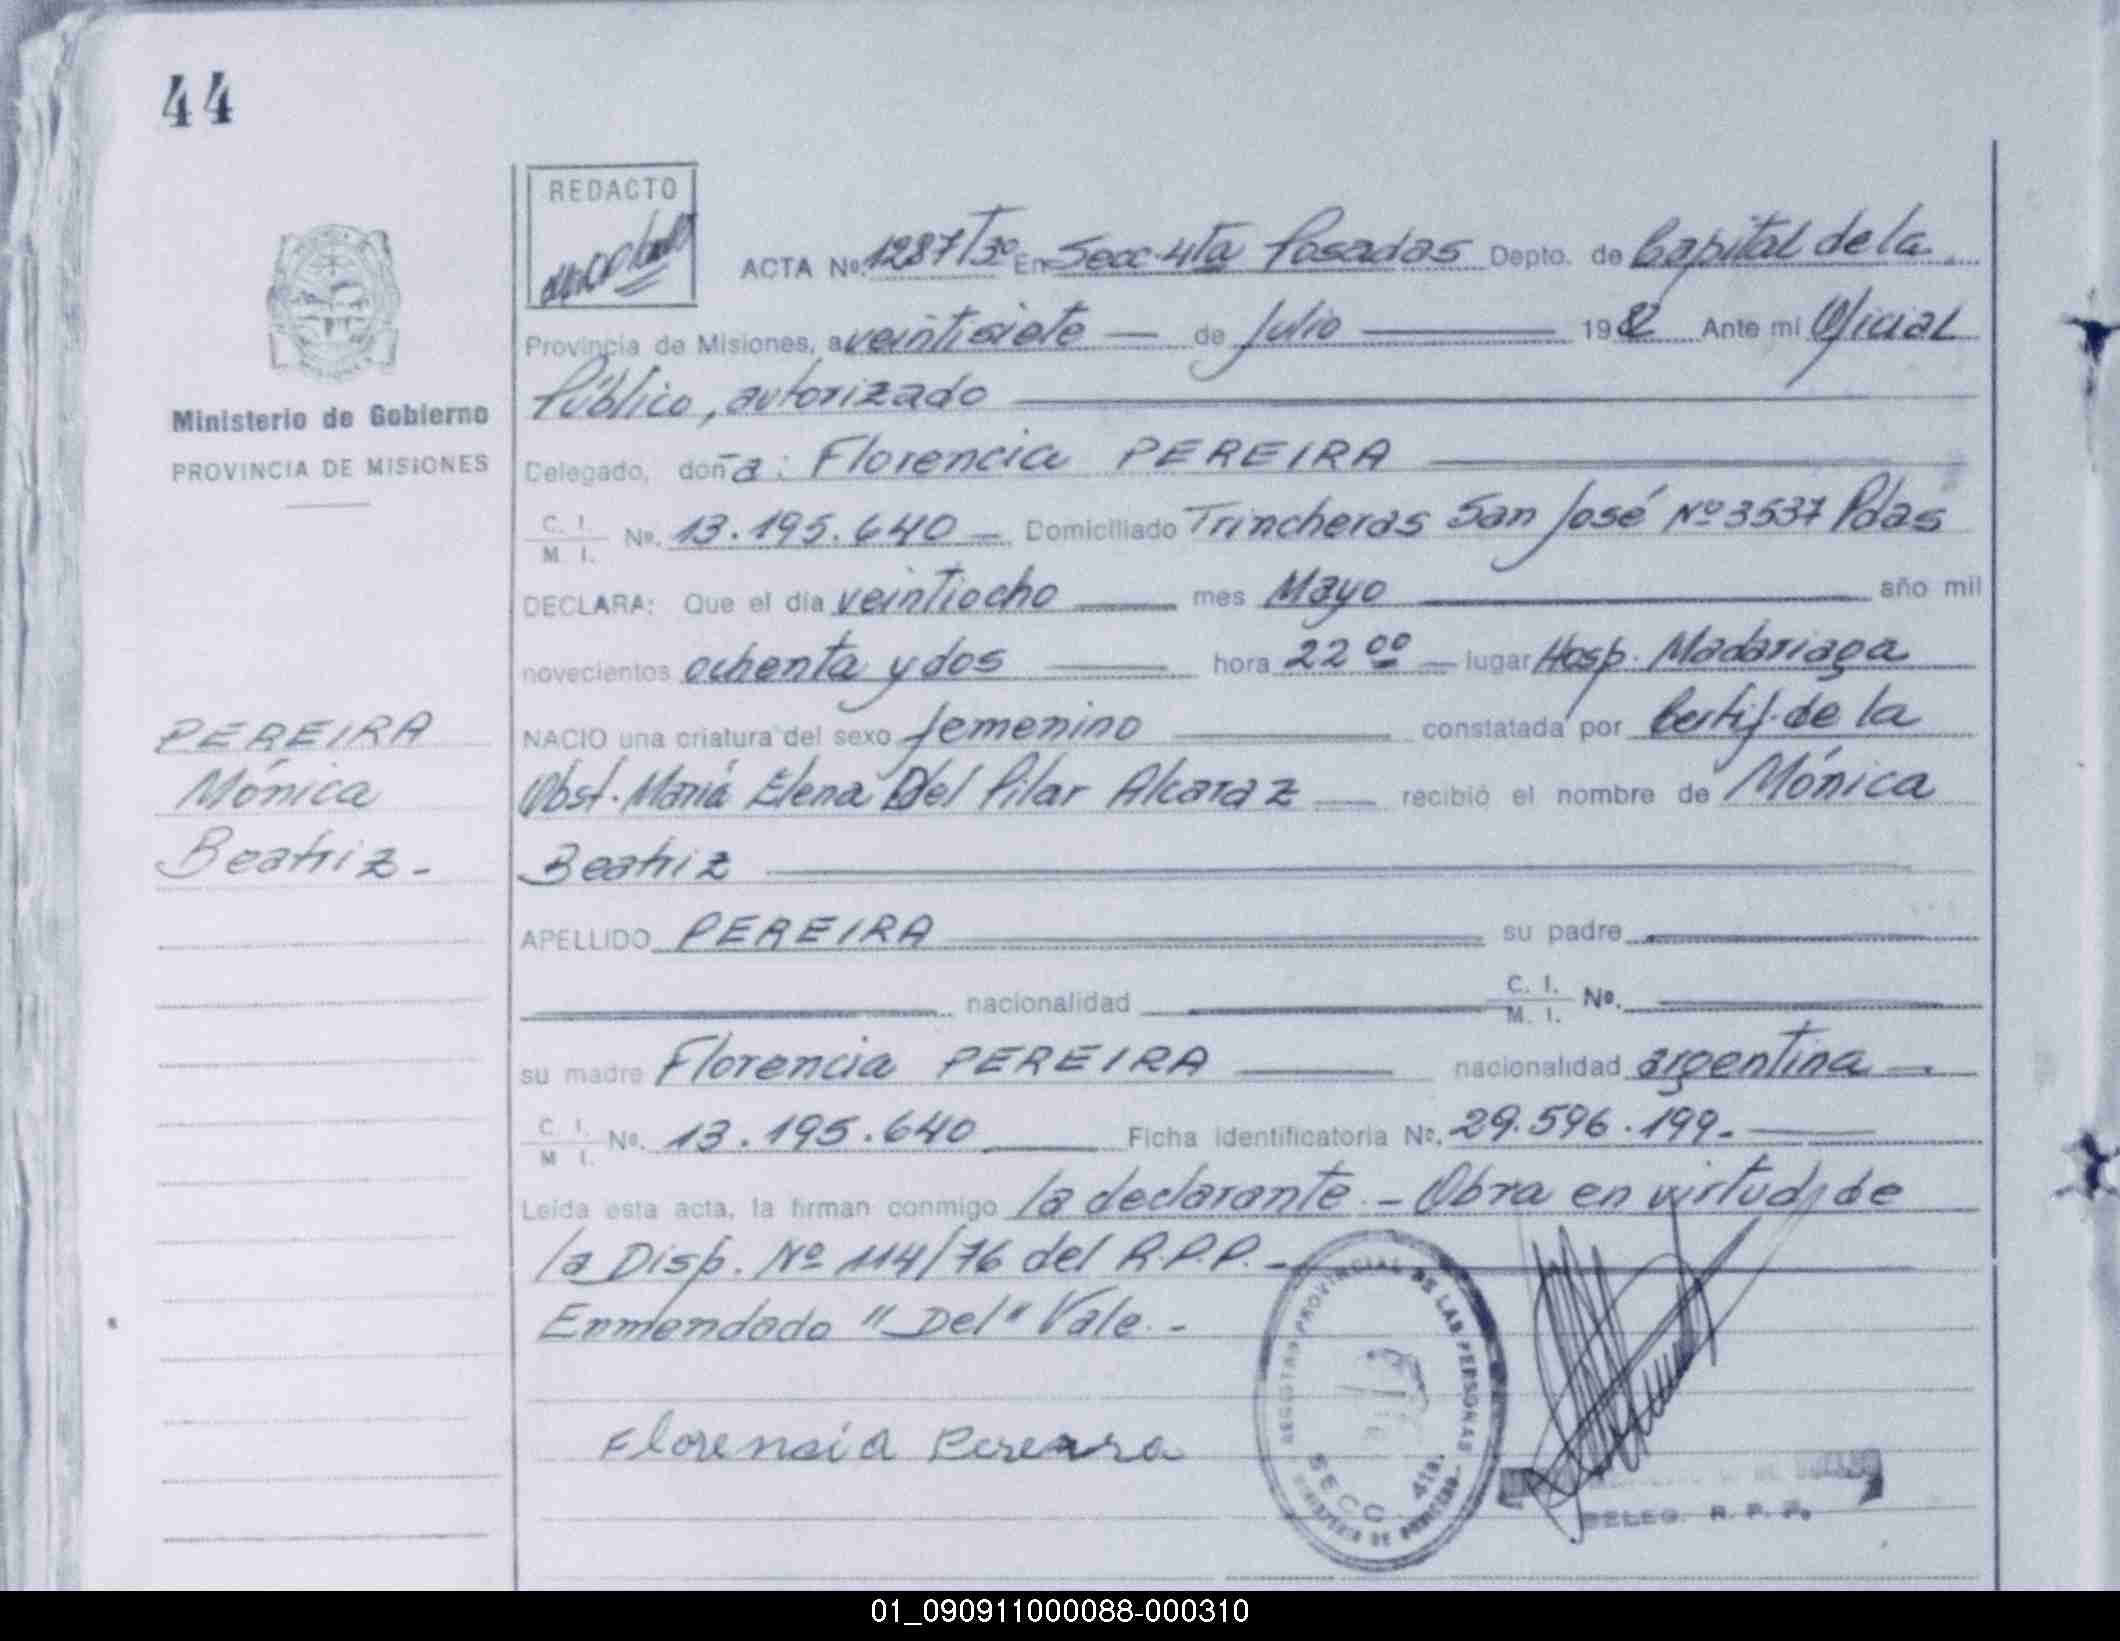 44
REDACTO
ACTA Nº. 1287/Tº 3º En Secc. 4ta Posadas Depto. de Capital de la
Provincia de Misiones, a veintisiete — de Julio — 1982 Ante mí Oficial
Público, autorizado
Ministerio de Gobierno
PROVINCIA DE MISIONES
Delegado, doña: Florencia PEREIRA
C. I. / M. I. Nº. 13.195.640 — Domiciliado Trincheras San José Nº 3537 Pdas
DECLARA: Que el día veintiocho — mes Mayo — año mil
novecientos ochenta y dos — hora 22 ºº — lugar Hosp. Madariaga
NACIO una criatura del sexo femenino — constatada por Certif. de la
Obst. María Elena Del Pilar Alcaraz — recibió el nombre de Mónica
Beatriz
PEREIRA
Mónica
Beatriz -
APELLIDO PEREIRA — su padre —
— nacionalidad — C. I. / M. I. Nº. —
su madre Florencia PEREIRA — nacionalidad argentina —
C. I. / M. I. Nº. 13.195.640 — Ficha identificatoria Nº. 29.596.199. —
Leída esta acta, la firman conmigo la declarante. - Obra en virtud de
la Disp. Nº 114/76 del R.P.P. -
Enmendado "Del" Vale. -
Florensia Pereira
REGISTRO PROVINCIAL DE LAS PERSONAS
SECC. 4ta.
MINISTERIO DE GOBIERNO
DELEG. R. P. P.
01_090911000088-000310